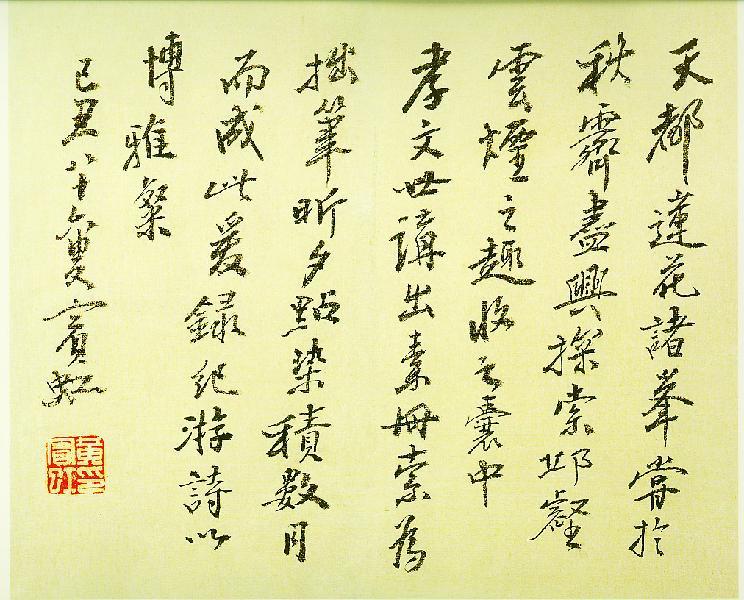 天都蓮花諸峯嘗於
秋霽盡興探索邱壑
雲煙之趣收之囊中
孝文世講出素冊索為
拙筆昕夕點染積數月
而成此爰錄紀游詩以
博雅粲
己丑八十六叟賓虹